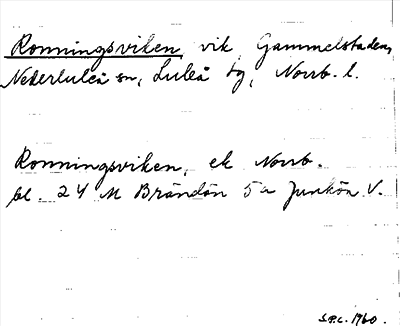 Ronningsviken, vik, Gammelstaden,
Nederluleå sn, Luleå tg, Norrb. l.
Ronningsviken, ek Norrb.
bl. 24 M Brändön 5a Junkön V.
S.P.C. 1960.